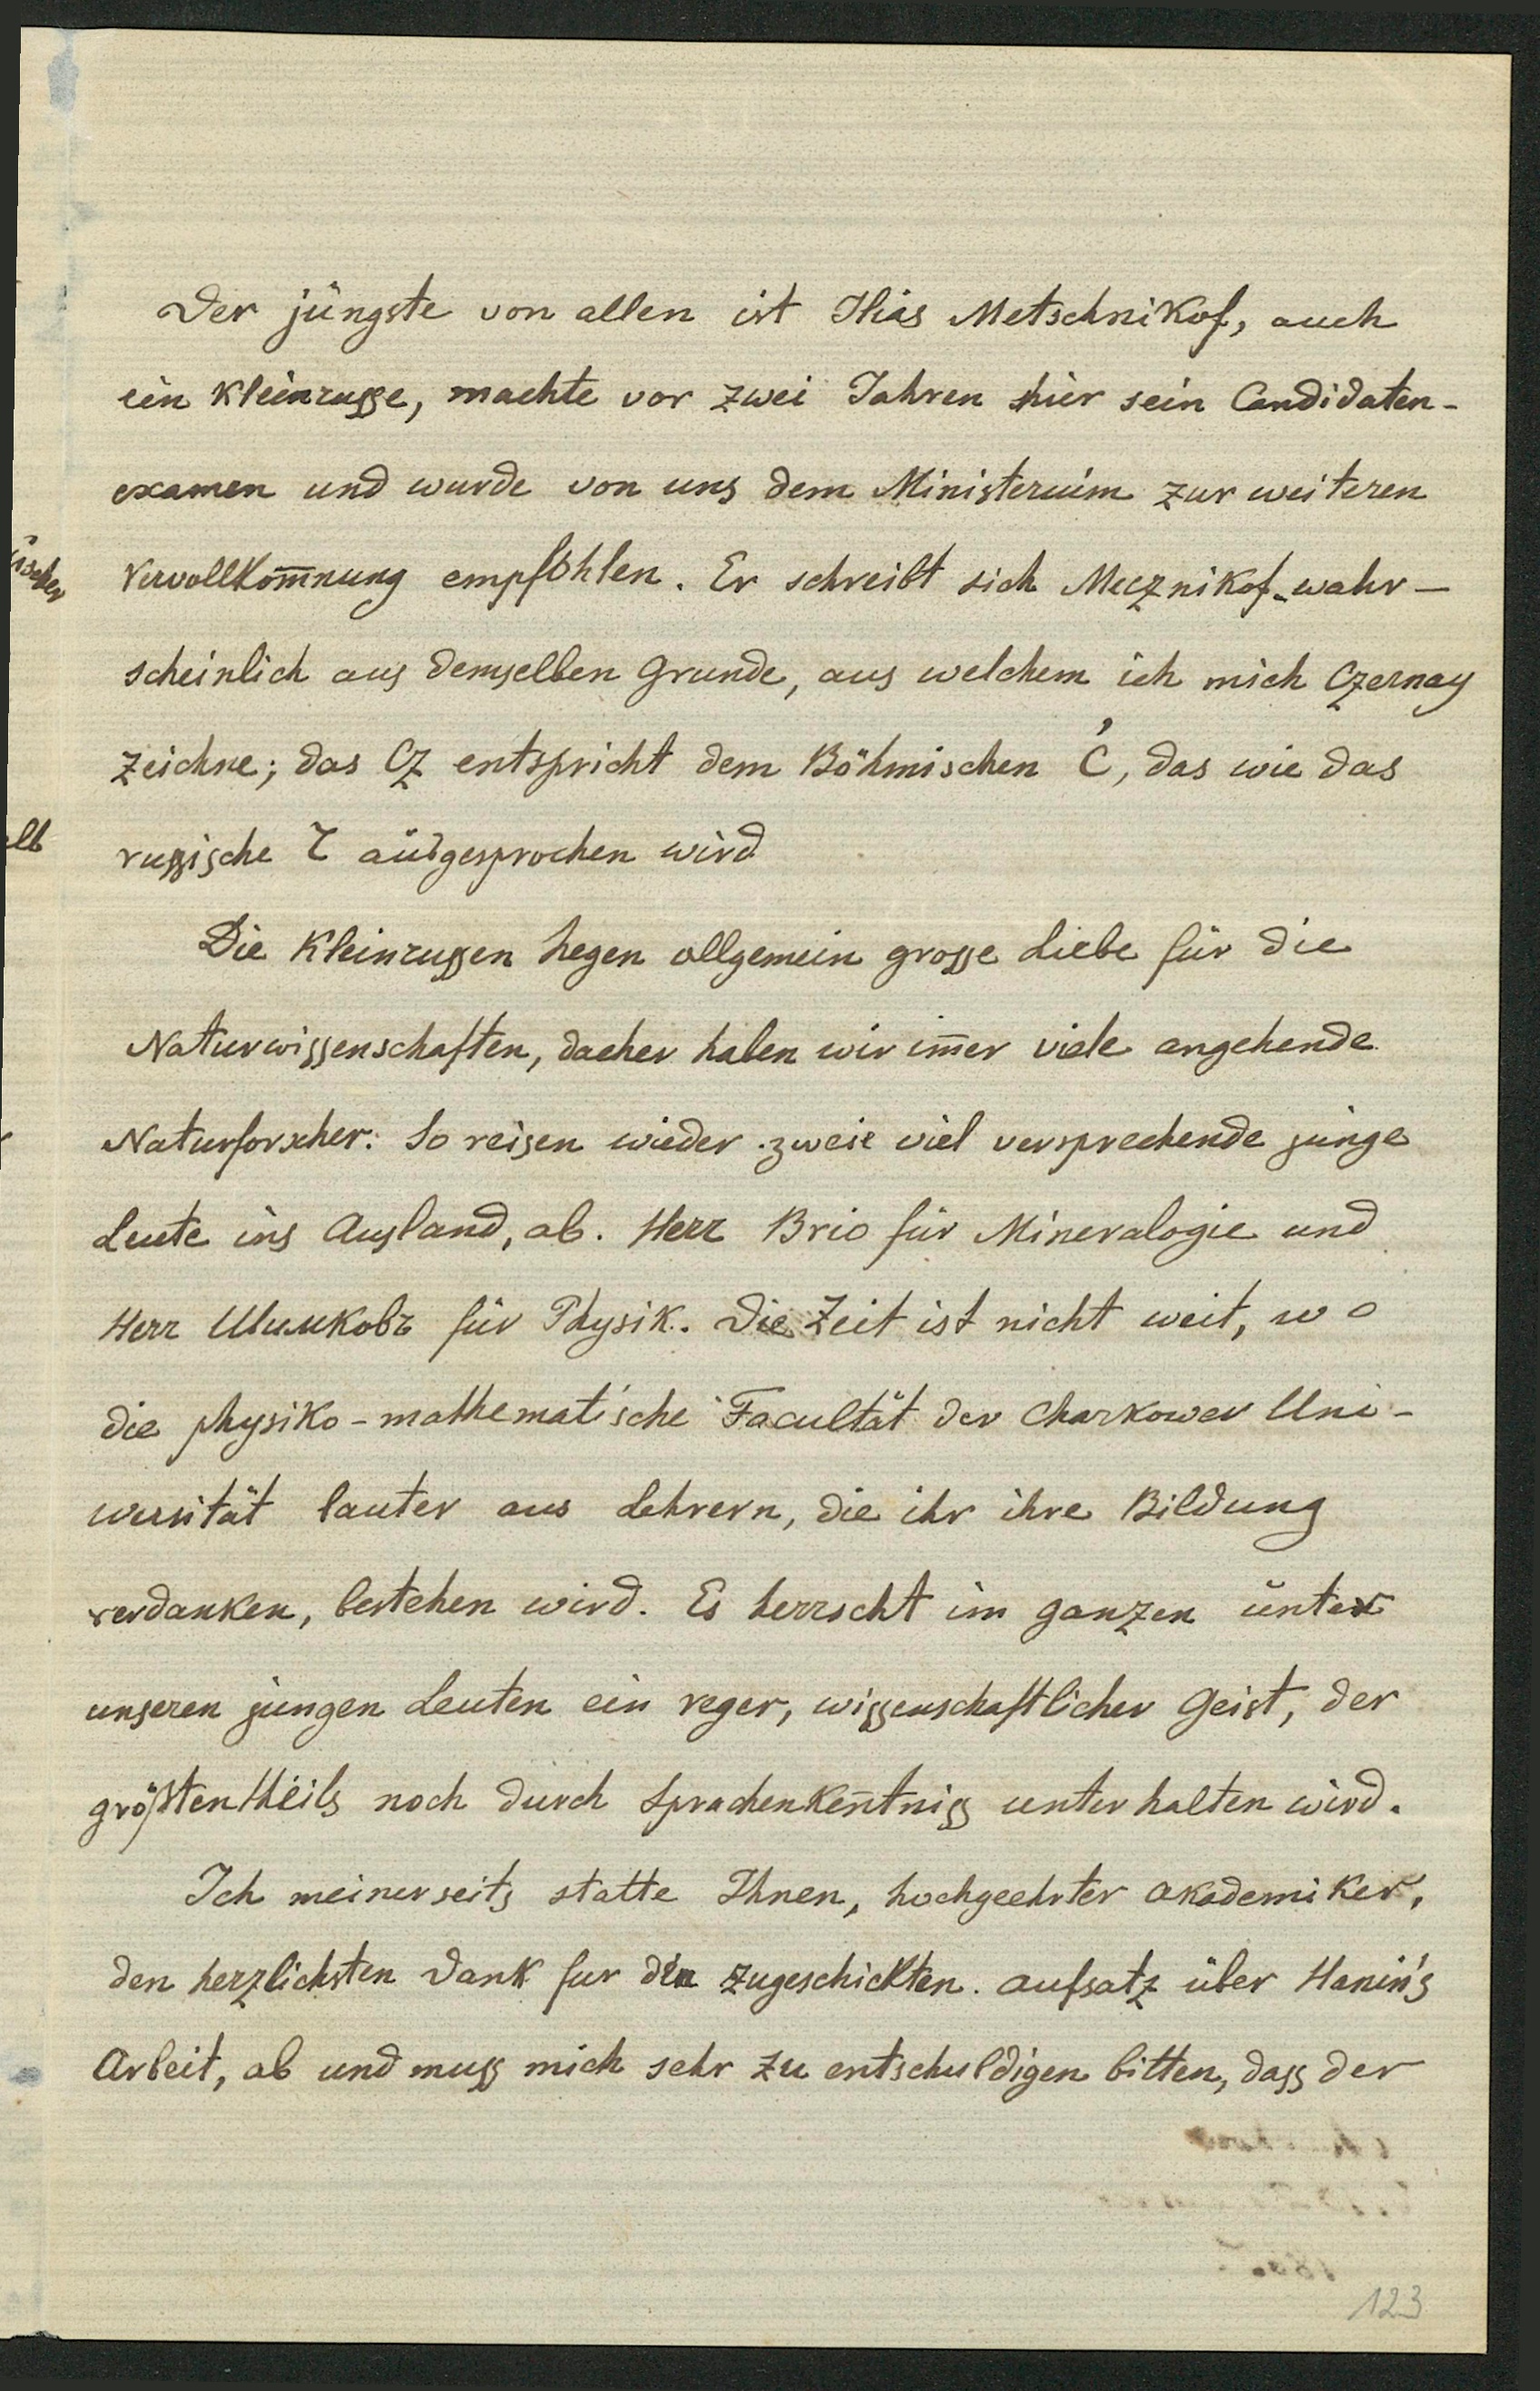 Der jüngste von allen ist Ilias Metschnikof, auch
ein Kleinrusse, machte vor zwei Jahren hier sein Candidaten-
examen und wurde von uns dem Ministerium zur weiteren
Vervollkom̅nung empföhlen. Er schreibt sich Mecznikof wahr-
scheinlich aus demselben Grunde, aus welchem ich mich Czernay
zeichne; das Cz entspricht dem Böhmischen C̓, das wie das
russische Č ausgesprochen wird
Die Kleinrussen hegen allgemein grosse Liebe für die
Naturwissenschaften, daeher haben wir im̅er viele angehende
Naturforscher: So reisen wieder zweie viel versprechende junge
Leute ins Ausland, ab. Herr Brio für Mineralogie und
Herr Шимковъ für Physik. Die Zeit ist nicht weit, wo
die physiko-mathematische Facultät der Charkower Uni-
wersität lauter aus Lehrern, die ihr ihre Bildung
verdanken, bestehen wird. Es herrscht im ganzen unter
unseren jungen Leuten ein reger, wissenschaftlicher Geist, der
größtentheils noch durch Sprachenken̅tniss unterhalten wird.
Ich meinerseits statte Ihnen, hochgeehrter Akademiker,
den herzlichsten Dank fur den zugeschickten. Aufsatz über Hanin's
Arbeit, ab und muss mich sehr zu entschuldigen bitten, dass der
123